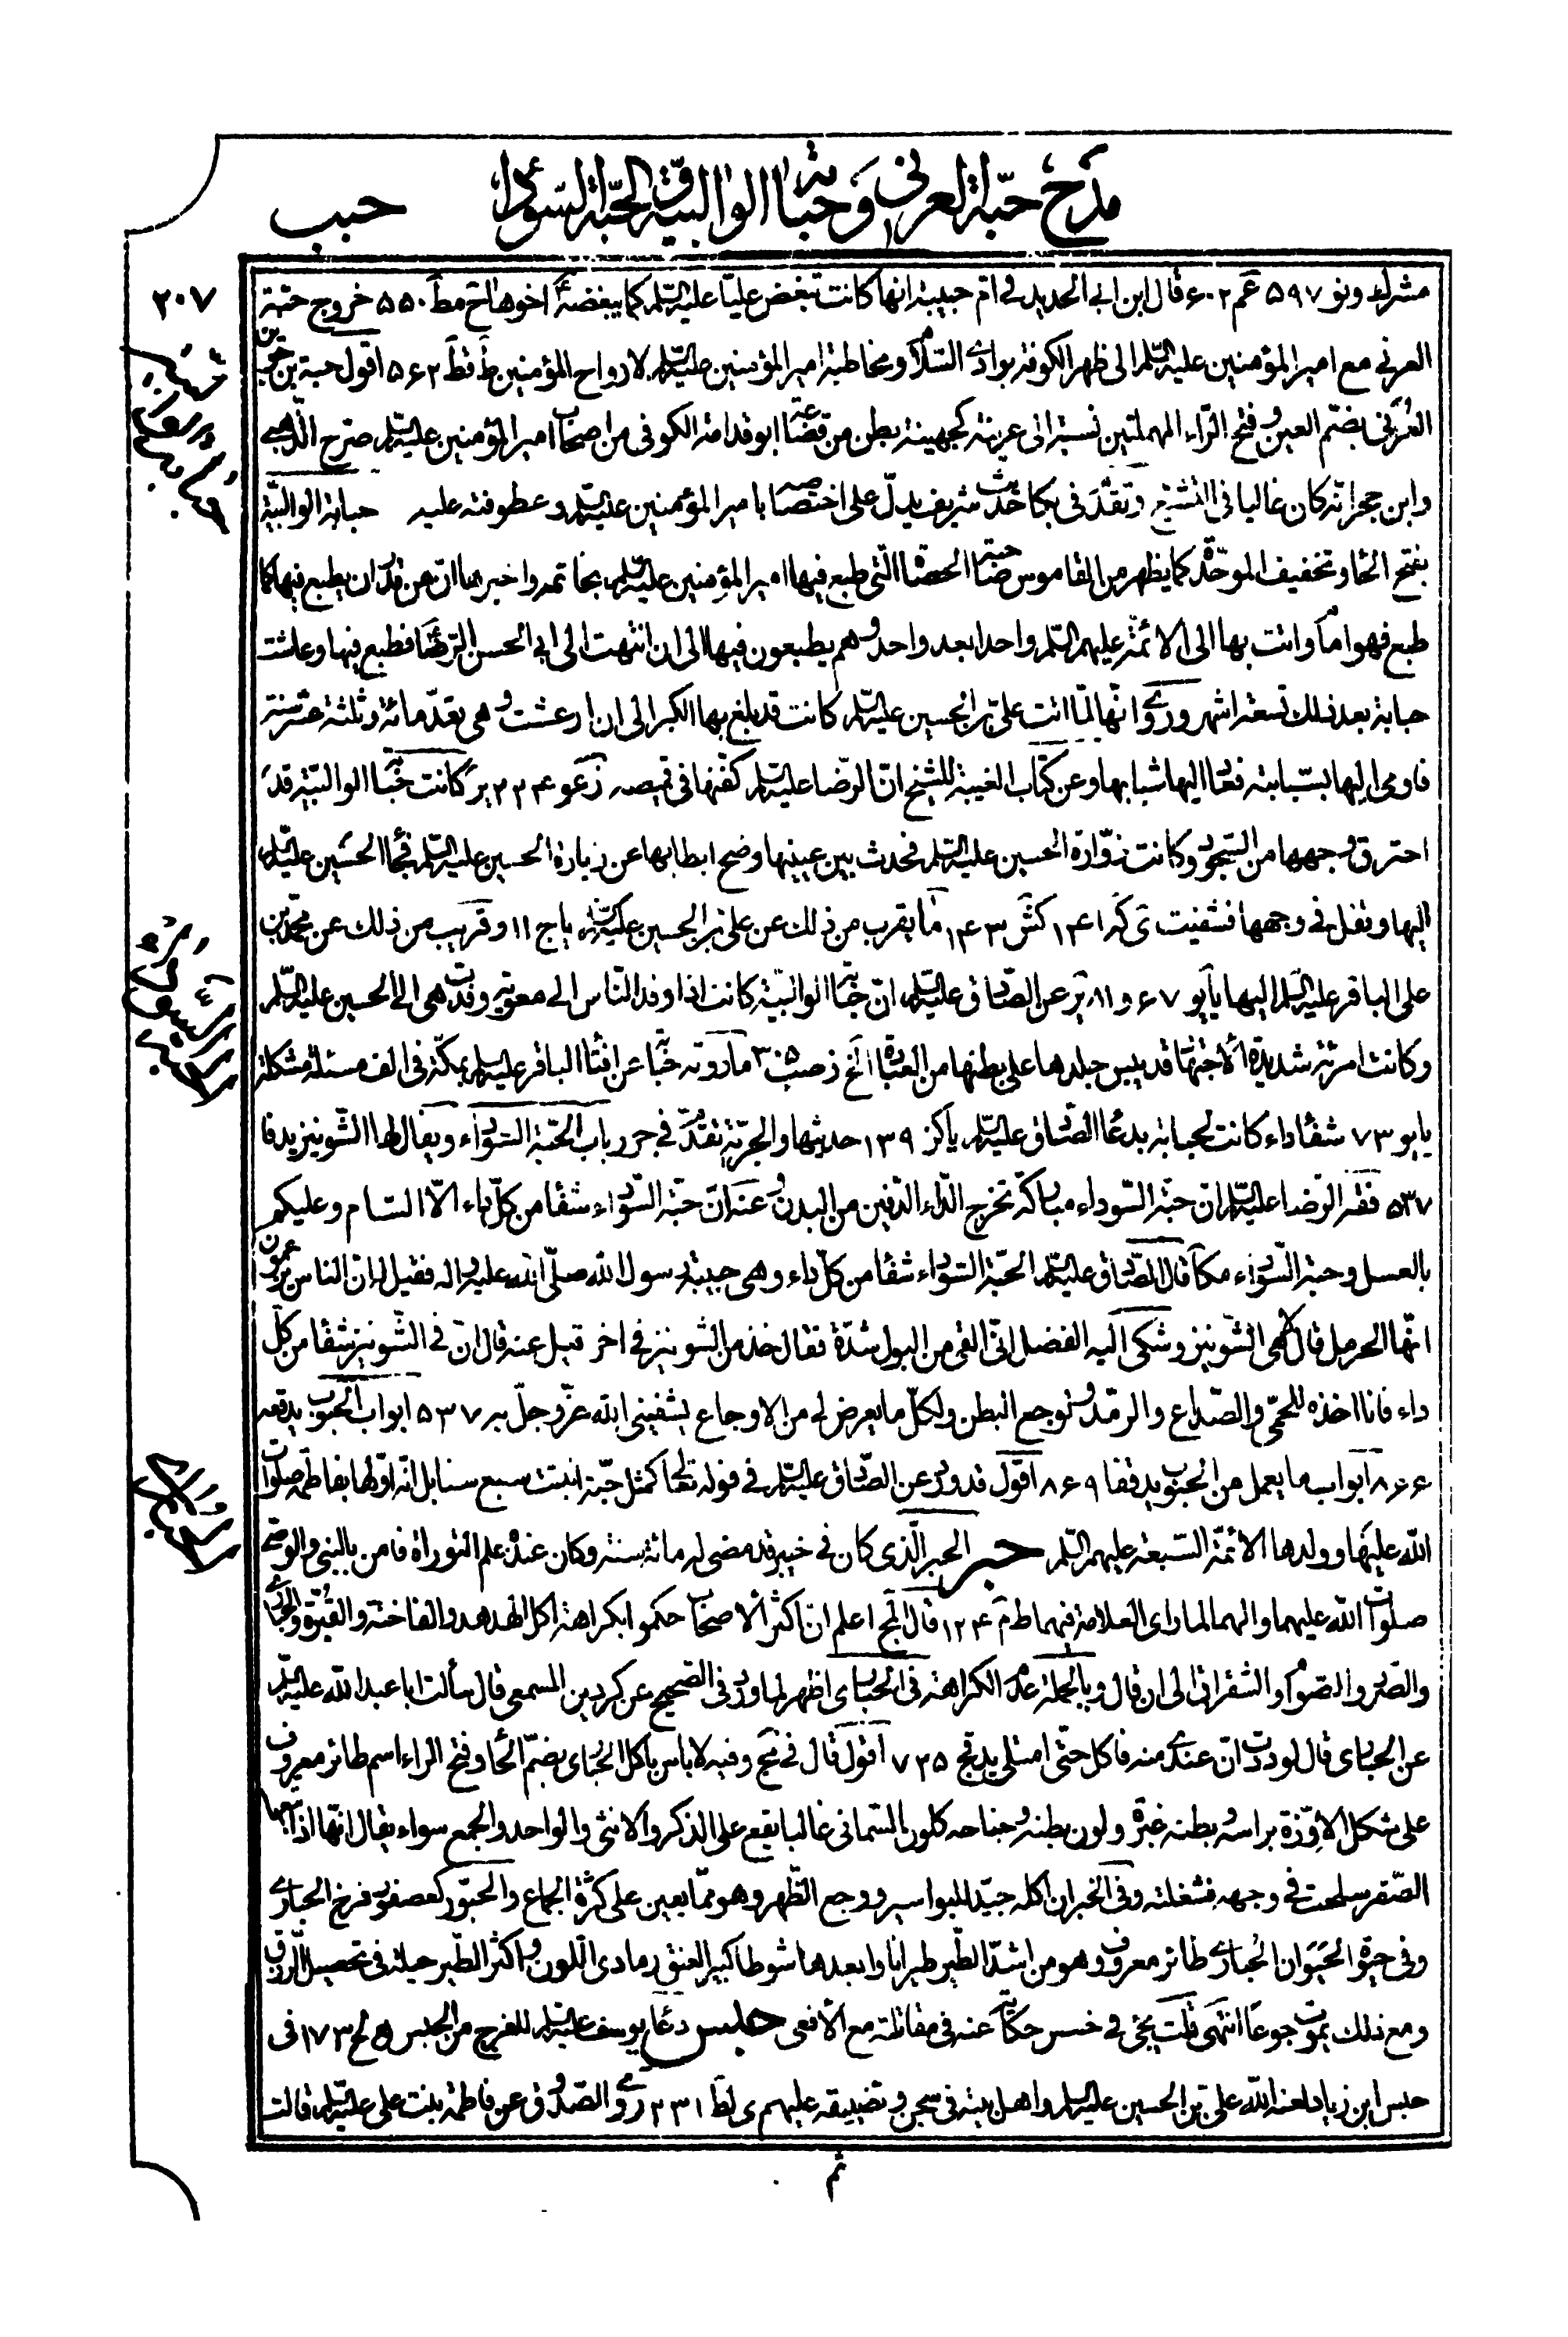 مدح حبّة العرني وحبابة الوالبيّة والحبّة السّوداء
حبب
٢٠٧
وثو ٥٩٧ عم ٦٠٢ قال ابن ابي الحديد في امّ حبيبة انها كانت تبغض عليّا عليه السّلم كما يبغضه اخوها الخ مط ٥٥٠ خروج حبّة
العرني مع امير المؤمنين عليه السّلم الى ظهر الكوفة بوادي السّلام ومخاطبة امير المؤمنين عليه السّلم لارواح المؤمنين ط قط ٥٦٢ اقول حبة بن جوين
العُرَني بضمّ العين وفتح الرّاء المهملتين نسبة الى عرينة كجهينة بطن من قضاعة ابو قدامة الكوفي من اصحاب امير المؤمنين عليه السّلم صرّح الذّهبي
وابن حجر انّه كان غاليا في التشيّع وتقدّم في بكا حديث شريف يدلّ على اختصاصه بامير المؤمنين عليه السّلم وعطوفته عليه حبابة الوالبيّة
بفتح الحاء وتخفيف الموحّدة كما يظهر من القاموس صاحبة الحصاة التّي طبع فيها امير المؤمنين عليه السّلم بخاتمه واخبرها انّ من قدر ان يطبع فيها كما
طبع فهو امام واتت بها الى الائمّة عليهم السّلم واحدا بعد واحد وهم يطبعون فيها الى ان انتهت الى ابي الحسن الرّضا فطبع فيها وعاشت
حبابة بعد ذلك تسعة اشهر وروي انّها لمّا اتت علي بن الحسين عليه السّلم كانت قد بلغ بها الكبر الى ان ارعشت وهي تعدّ مائة وثلثة عشر سنة
فاومى اليها بسبّابته فعاد اليها شبابها وعن كتاب الغيبة للشيخ انّ الرّضا عليه السّلم كفّنها في قميصه ز عو ٢٣٤ ير كانت حبابة الوالبيّة قد
احترق وجهها من السّجود وكانت زوّارة الحسين عليه السّلم فحدث بين عينيها وضح ابطأ بها عن زيارة الحسين عليه السّلم فجاء الحسين عليه السّلم
اليها وتفل في وجهها فشفيت ى كه ١٤١ كش ١٤٣ ما يقرب من ذلك عن علي بن الحسين عليه السّلم يا ج ١١ وقريب من ذلك عن محمّد بن
علي الباقر عليه السّلم اليها يا يو ٦٧ و ٨١ ير عن الصّادق عليه السّلم انّ حبابة الوالبيّة كانت اذا وفد النّاس الى معوية وفدت هي الى الحسين عليه السّلم
وكانت امرئة شديدة الاجتهاد قد يبس جلدها على بطنها من العبادة الخ ز صب ٣٠٥ ما روته حبابة عن افتاء الباقر عليه السّلم بمكّة في الف مسئلة مشكلة
يا يو ٧٣ شفاء داء كانت لحبابة بدعاء الصّادق عليه السّلم يا كز ١٣٩ حديثها والجرّية تقدّم في جرر باب الحبّة السّوداء ويقال لها الشّونيز يد فا
٥٣٧ فقه الرّضا عليه السّلم ان حبّة السّوداء مباركة تخرج الدّاء الدّفين من البدن وعنه انّ حبّة السّوداء شفاء من كلّ داء الّا السّام وعليكم
بالعسل وحبة السّوداء مكا قال الصّادق عليه السّلم الحبّة السّوداء شفاء من كلّ داء وهي حبيبة رسول الله صلّى الله عليه واله فقيل له انّ الناس يزعمون
انّها الحرمل قال لا هي الشّونيز وشكى اليه الفضل انّي القى من البول شدّة فقال خذ من الشونيز في اخر قيل عنه قال انّ في الشّونيز شفاء من كلّ
داء فانا اخذه للحمّى والصّداع والرّمد ولوجع البطن ولكلّ ما يعرض لي من الاوجاع يشفيني الله عزّ وجلّ به ٥٣٧ ابواب الحبوب يد قعه
٨٦٦ ابواب ما يعمل من الحبوب يد قفا ٨٦٩ اقول قد ورد عن الصّادق عليه السّلم في قوله تعالى كمثل حبّة انبتت سبع سنابل انّه اوّلها بفاطمة صلوات
الله عليها وولدها الائمّة السّبعة عليهم السّلم حبر الحبر الّذي كان في خيبر قد مضى له مائة سنة وكان عنده علم التوراة فامن بالنبي والوصي
صلوات الله عليهما والهما لما راى العلامة فيهما ط م ١٢٤ قال لمج اعلم انّ اكثر الاصحاب حكموا بكراهة اكل الهدهد والفاختة والقبّرة والحبارى
والصّرد والصّوام والشقراق الى ان قال وبالجملة عدم الكراهة في الحبارى اظهر لما ورد في الصّحيح عن كردين المسمعي قال سألت ابا عبد الله عليه السّلم
عن الحبارى قال لوددت انّ عندي منه فاكل حتّى امتلي يد قج ٧٣٥ اقول قال في مج وفيه لا باس باكل الحُبارى بضمّ الحاء وفتح الراء اسم طائر معروف
على شكل الاوزّة براسه وبطنه غبرة ولون بطنه وجناحه كلون السّماني غالبا يقع على الذكر والانثى والواحد والجمع سواء يقال انّها اذا تبعها
الصّقر سلحت في وجهه فشغلته وفي الخبر ان اكله جيّد للبواسير ووجع الظّهر وهو ممّا يعين على كثرة الجماع والحبّور كعصفور فرخ الحبارى
وفي حيوة الحَيَوان الحُبارى طائر معروف وهو من اشدّ الطّير طيرانا وابعدها شوطا كبير العنق رمادي اللون واكثر الطّير حيلة في تحصيل الرّزق
ومع ذلك يموت جوعا انتهى قلت يجئ في خسس حكاية عنه في مقاتلته مع الافعى حبس دعاء يوسف عليه السّلم للفرج من الحبس ه لح ١٧٣ في
حبس ابن زياد لعنه الله علي بن الحسين عليه السّلم واهل بيته في سجن وتضييقه عليهم ى لط ٢٣١ روى الصّدوق عن فاطمة بنت علي عليه السّلم قالت
ثم